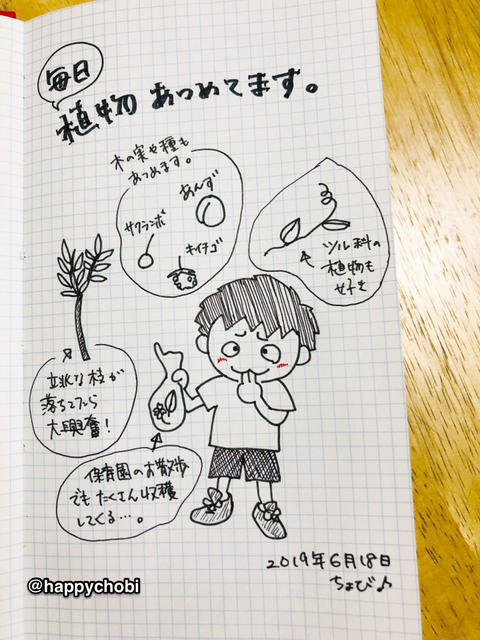 毎日
植物あつめてます。
木の実や種も
あつめます。
あんず
サクランボ
キイチゴ
ツル科の
植物も
好き
立派な枝が
落ちてたら
大興奮!
保育園のお散歩
でもたくさん収穫
してくる…。
2019年6月18日
ちょび♪
@happychobi